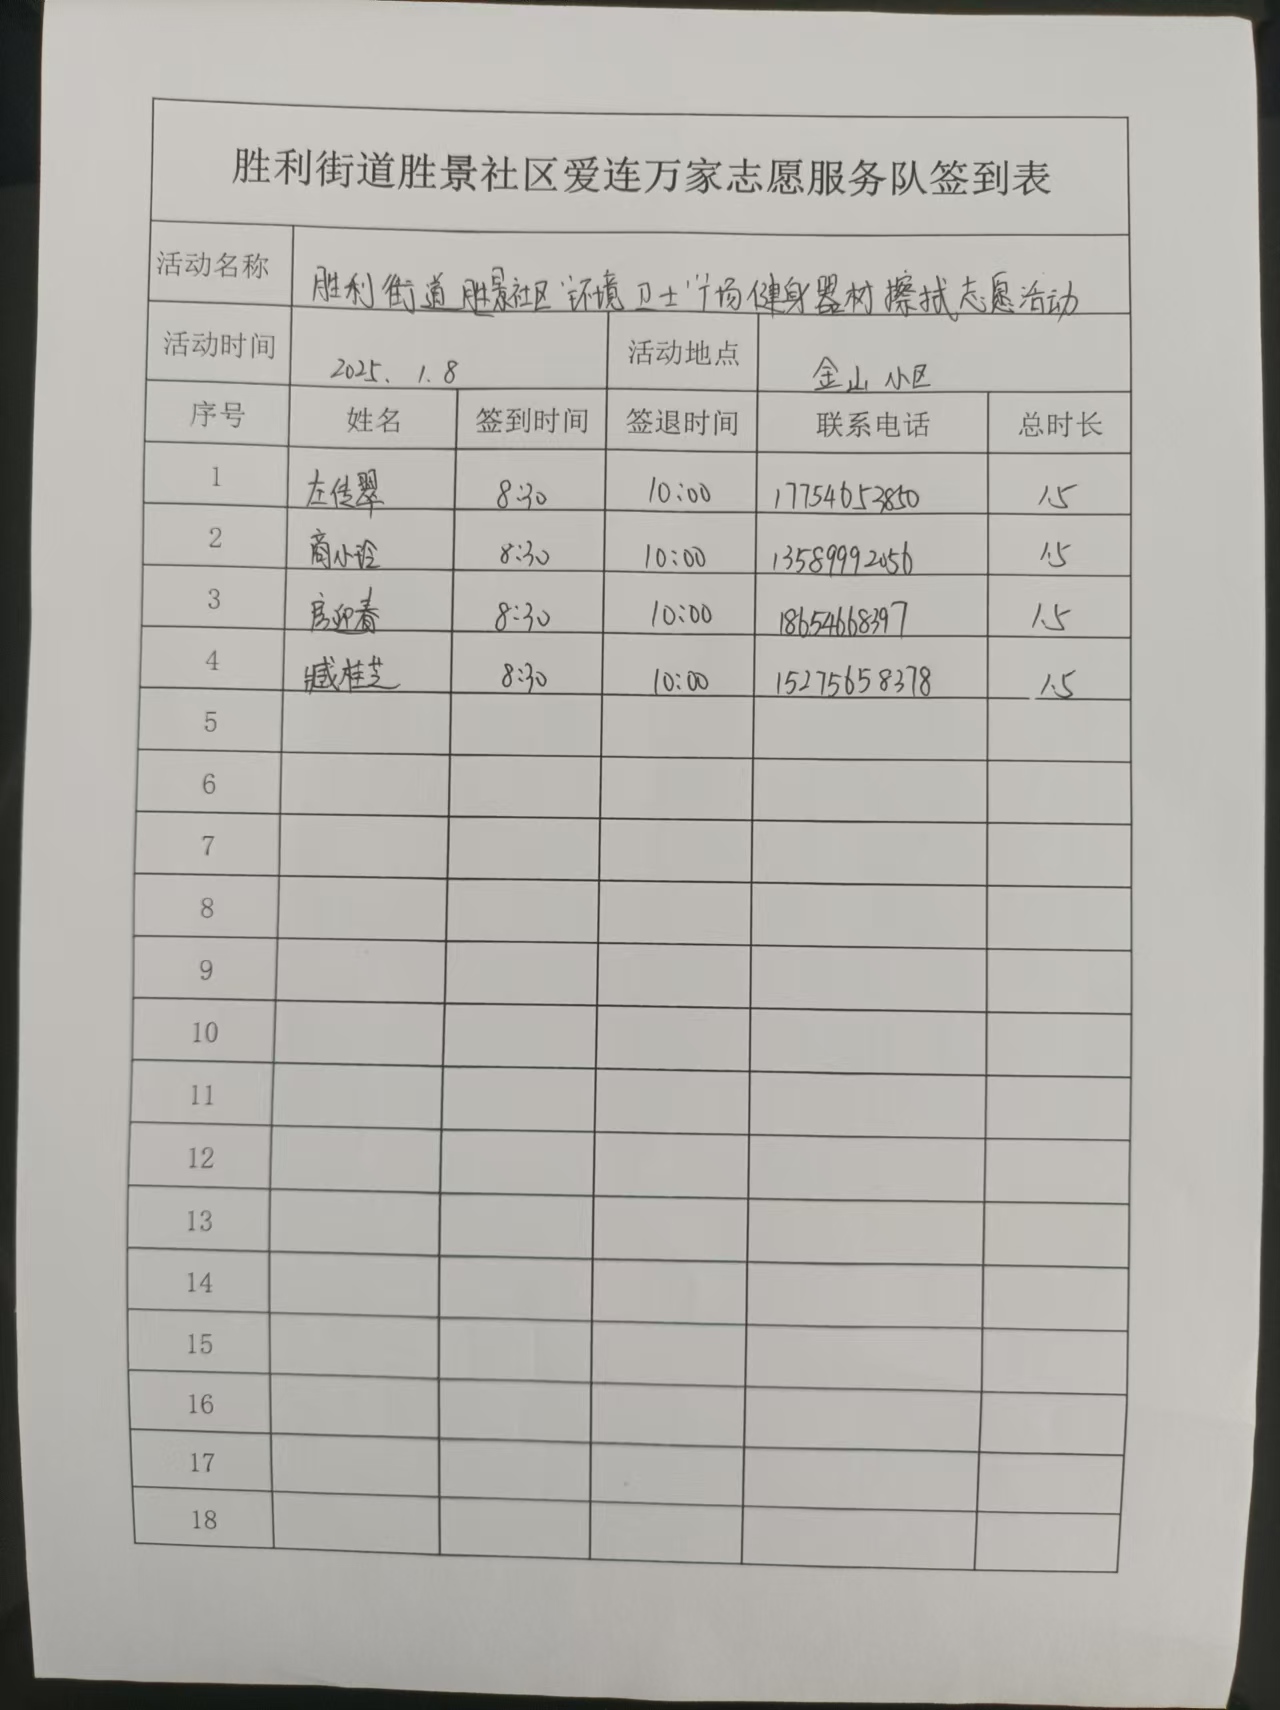 胜利街道胜景社区爱连万家志愿服务队签到表
活动名称 胜利街道胜景社区"环境卫士"广场健身器材擦拭志愿活动
活动时间 2025.1.8 活动地点 金山小区
序号 姓名 签到时间 签退时间 联系电话 总时长
1 左传翠 8:30 10:00 17754653850 1.5
2 商小玲 8:30 10:00 13589992056 1.5
3 房迎春 8:30 10:00 18654668397 1.5
4 臧桂芝 8:30 10:00 15275658378 1.5
5
6
7
8
9
10
11
12
13
14
15
16
17
18